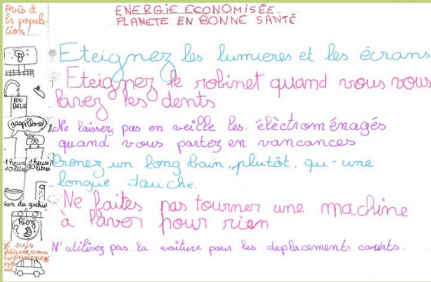 Avis à
la popula-
tion!
ENERGIE ECONOMISÉE.
PLANETE EN BONNE SANTÉ
Eteignez les lumieres et les écrans
Eteignez le robinet quand vous vous
lavez les dents
Ne laissez pas en veille les électroménagés
quand vous partez en vancances
Prenez un long bain plutôt qu'-une
longue douche.
Ne faites pas tourner une machine
à laver pour rien
N'utilisez pas la voiture pour les deplacements courts.
POU
BELLE
gaspillons!
1 heure